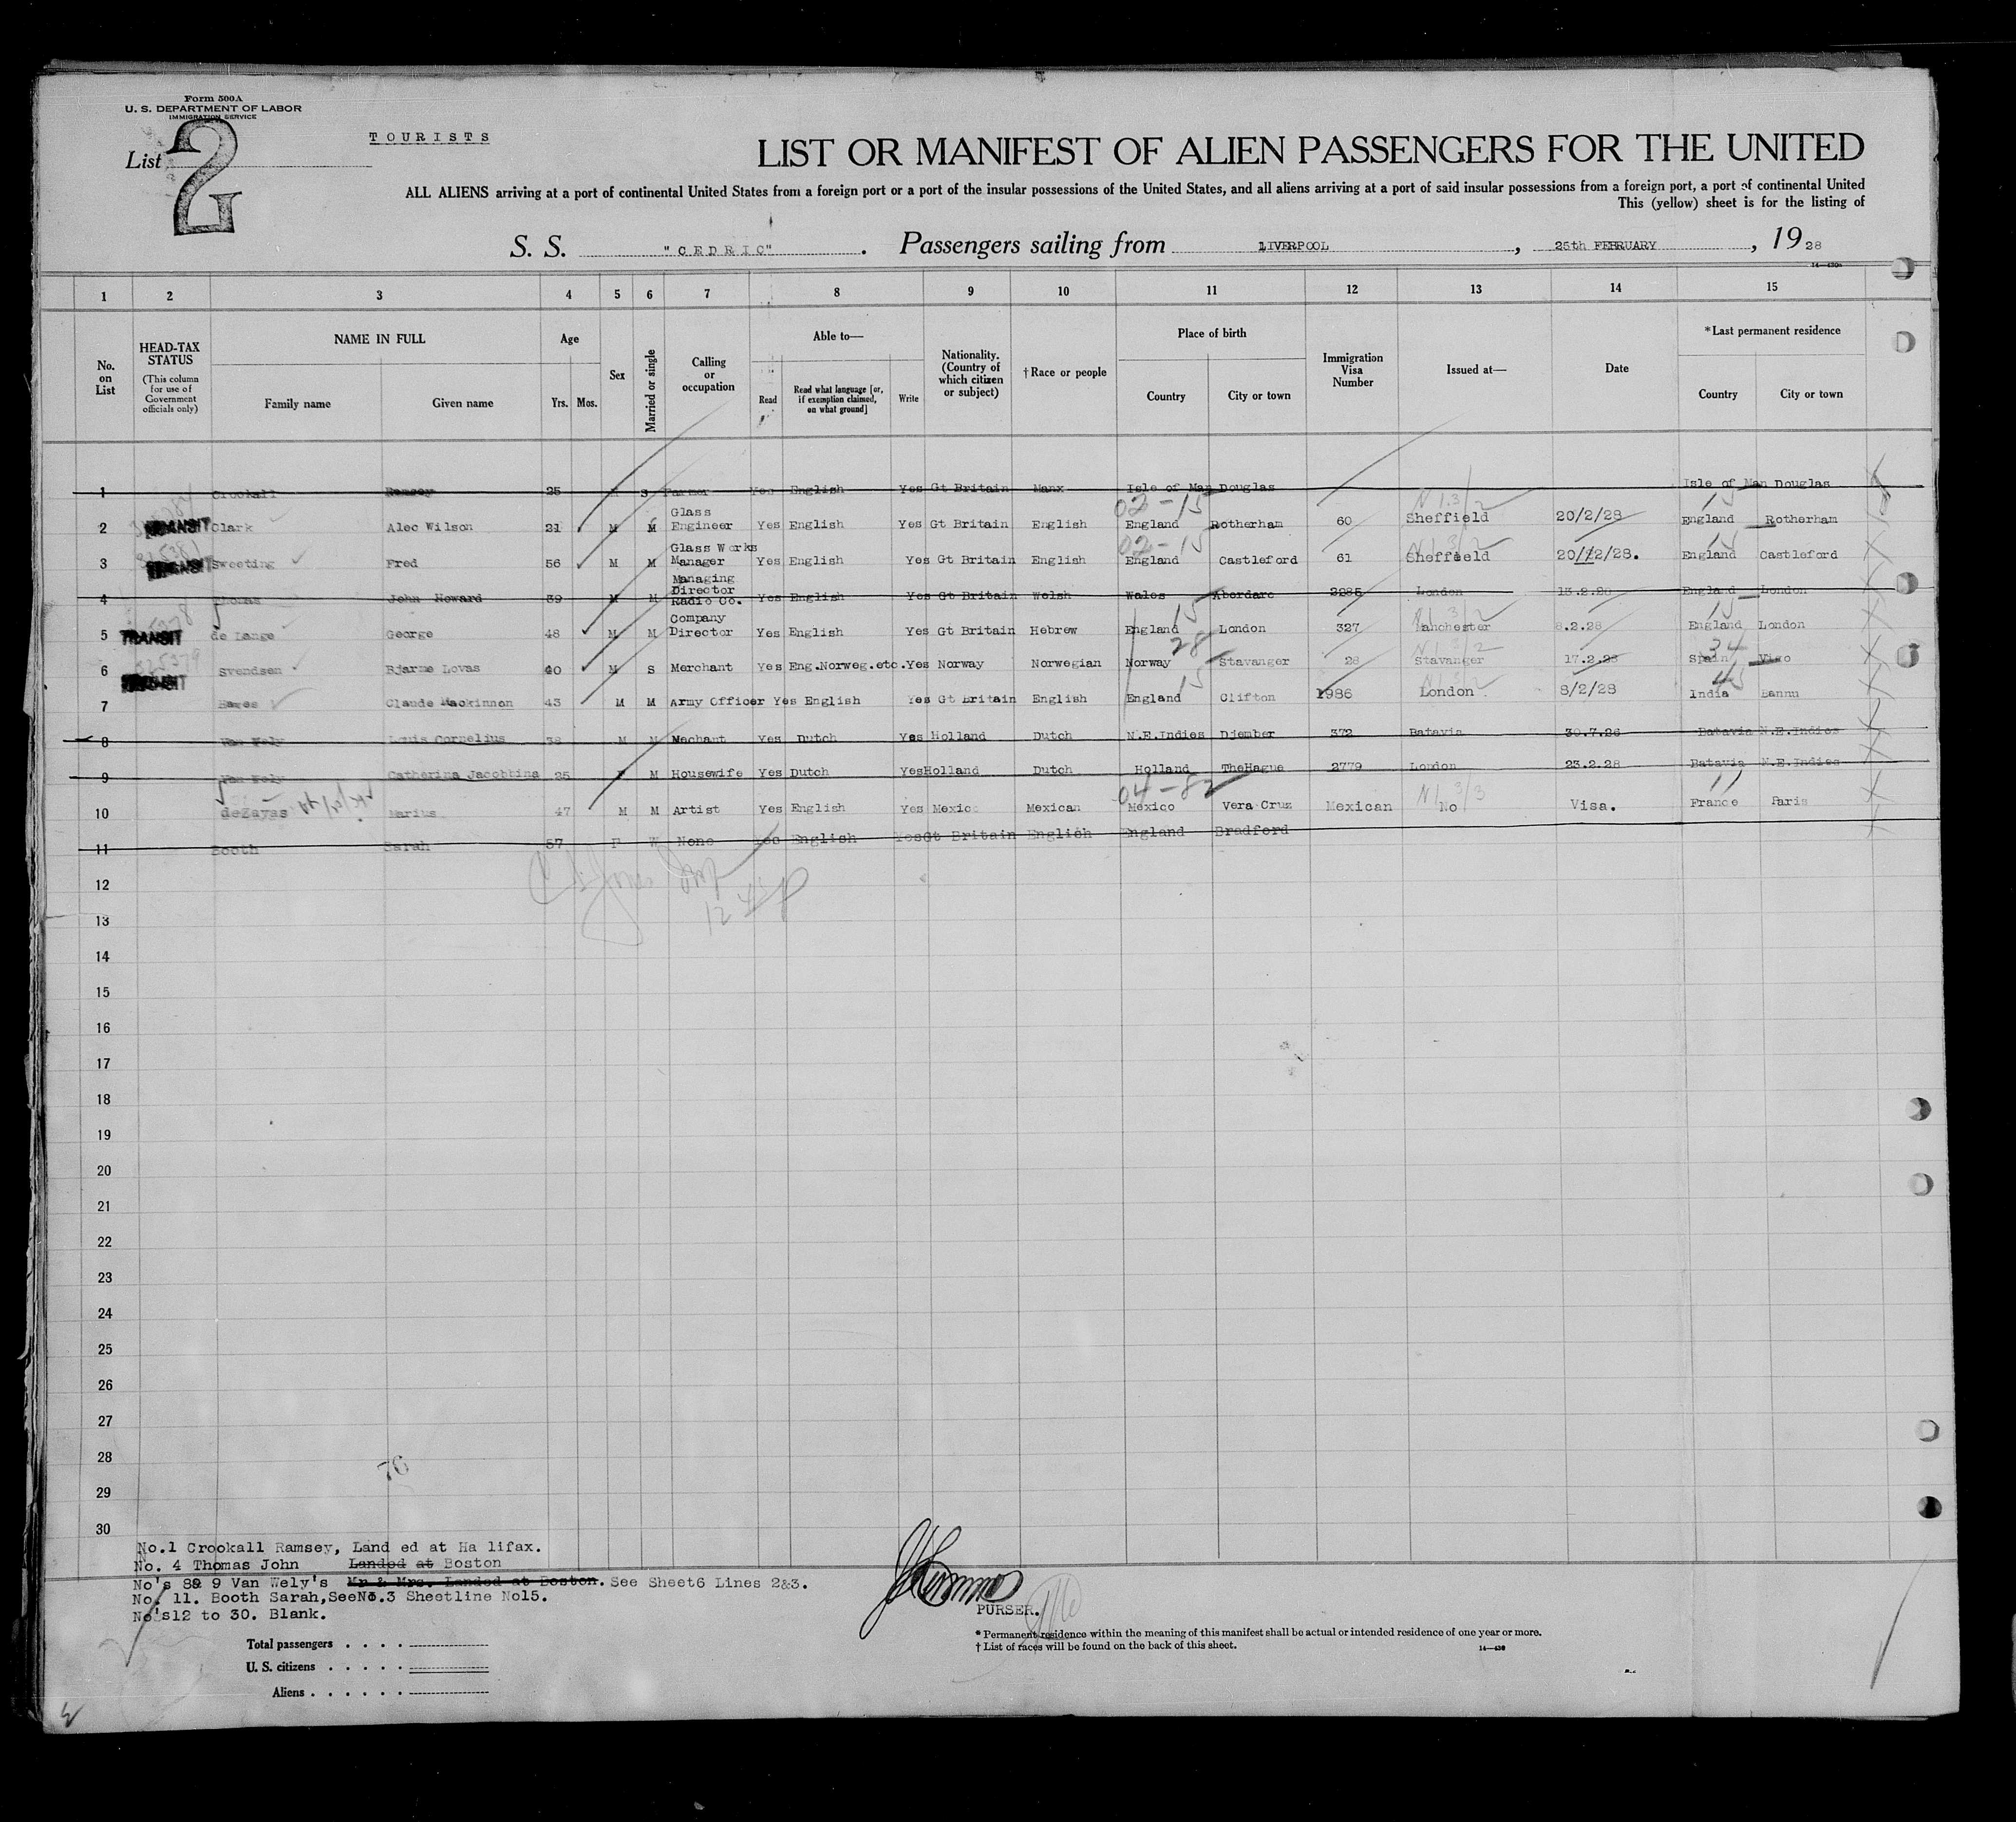 Form 500A
U. S. DEPARTMENT OF LABOR
IMMIGRATION SERVICE
TOURISTS
List 2
LIST OR MANIFEST OF ALIEN PASSENGERS FOR THE UNITED
ALL ALIENS arriving at a port of continental United States from a foreign port or a port of the insular possessions of the United States, and all aliens arriving at a port of said insular possessions from a foreign port, a port of continental United
This (yellow) sheet is for the listing of
S. S. "CEDRIC". Passengers sailing from LIVERPOOL, 25th FEBRUARY, 1928
1 2 3 4 5 6 7 8 9 10 11 12 13 14 15
No. on List
HEAD-TAX STATUS
(This column for use of Government officials only)
NAME IN FULL
Family name Given name
Age
Yrs. Mos.
Sex
Married or single
Calling or occupation
Able to—
Read
Read what language [or, if exemption claimed, on what ground]
Write
Nationality. (Country of which citizen or subject)
†Race or people
Place of birth
Country City or town
Immigration Visa Number
Issued at—
Date
*Last permanent residence
Country City or town
1 Crookall Ramsey 25 M S Farmer Yes English Yes Gt Britain Manx Isle of Man Douglas Isle of Man Douglas
2 TRANSIT Clark Alec Wilson 21 M M Glass Engineer Yes English Yes Gt Britain English England Rotherham 60 Sheffield 20/2/28 England Rotherham
3 TRANSIT Sweeting Fred 56 M M Glass Works Manager Yes English Yes Gt Britain English England Castleford 61 Sheffield 20/2/28. England Castleford
4 Thomas John Howard 39 M M Managing Director Radio Co. Yes English Yes Gt Britain Welsh Wales Aberdare 2985 London 13.2.28 England London
5 TRANSIT de Lange George 48 M M Company Director Yes English Yes Gt Britain Hebrew England London 327 Manchester 8.2.28 England London
6 TRANSIT Svendsen Bjarne Lovas 40 M S Merchant Yes Eng.Norweg.etc. Yes Norway Norwegian Norway Stavanger 28 Stavanger 17.2.28 Spain Vigo
7 Claude Mackinnon 43 M M Army Officer Yes English Yes Gt Britain English England Clifton 1986 London 8/2/28 India Bannu
8 Van Wely Louis Cornelius 38 M M Mechant Yes Dutch Yes Holland Dutch N.E.Indies Djember 372 Batavia 30.7.26 Batavia N.E.Indies
9 Van Wely Catherina Jacobbina 25 F M Housewife Yes Dutch Yes Holland Dutch Holland TheHague 2779 London 23.2.28 Batavia N.E.Indies
10 deZayas Marius 47 M M Artist Yes English Yes Mexico Mexican Mexico Vera Cruz Mexican No Visa. France Paris
11 Booth Sarah 57 F W None Yes English Yes Gt Britain English England Bradford
12
13
14
15
16
17
18
19
20
21
22
23
24
25
26
27
28
76
29
30
No.1 Crookall Ramsey, Land ed at Ha lifax.
No. 4 Thomas John Landed at Boston
No's 8& 9 Van Wely's Mr & Mrs. Landed at Boston. See Sheet6 Lines 2&3.
No. 11. Booth Sarah,SeeNo.3 Sheetline No15.
No's12 to 30. Blank.
PURSER.
Total passengers
U. S. citizens
Aliens
* Permanent residence within the meaning of this manifest shall be actual or intended residence of one year or more.
† List of races will be found on the back of this sheet.
14—430